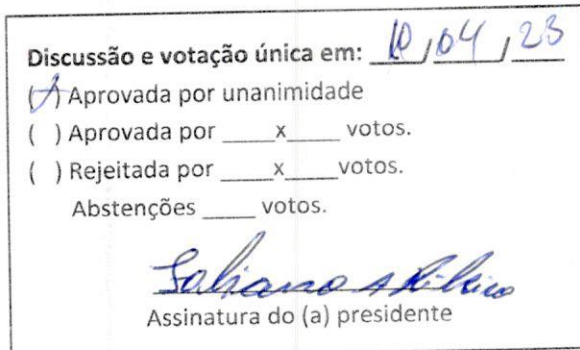 Discussão e votação única em: 10/04/23
( ) Aprovada por unanimidade
( ) Aprovada por _____x_____ votos.
( ) Rejeitada por _____x_____votos.
Abstenções _____ votos.
Fabiano A Ribeiro
Assinatura do (a) presidente